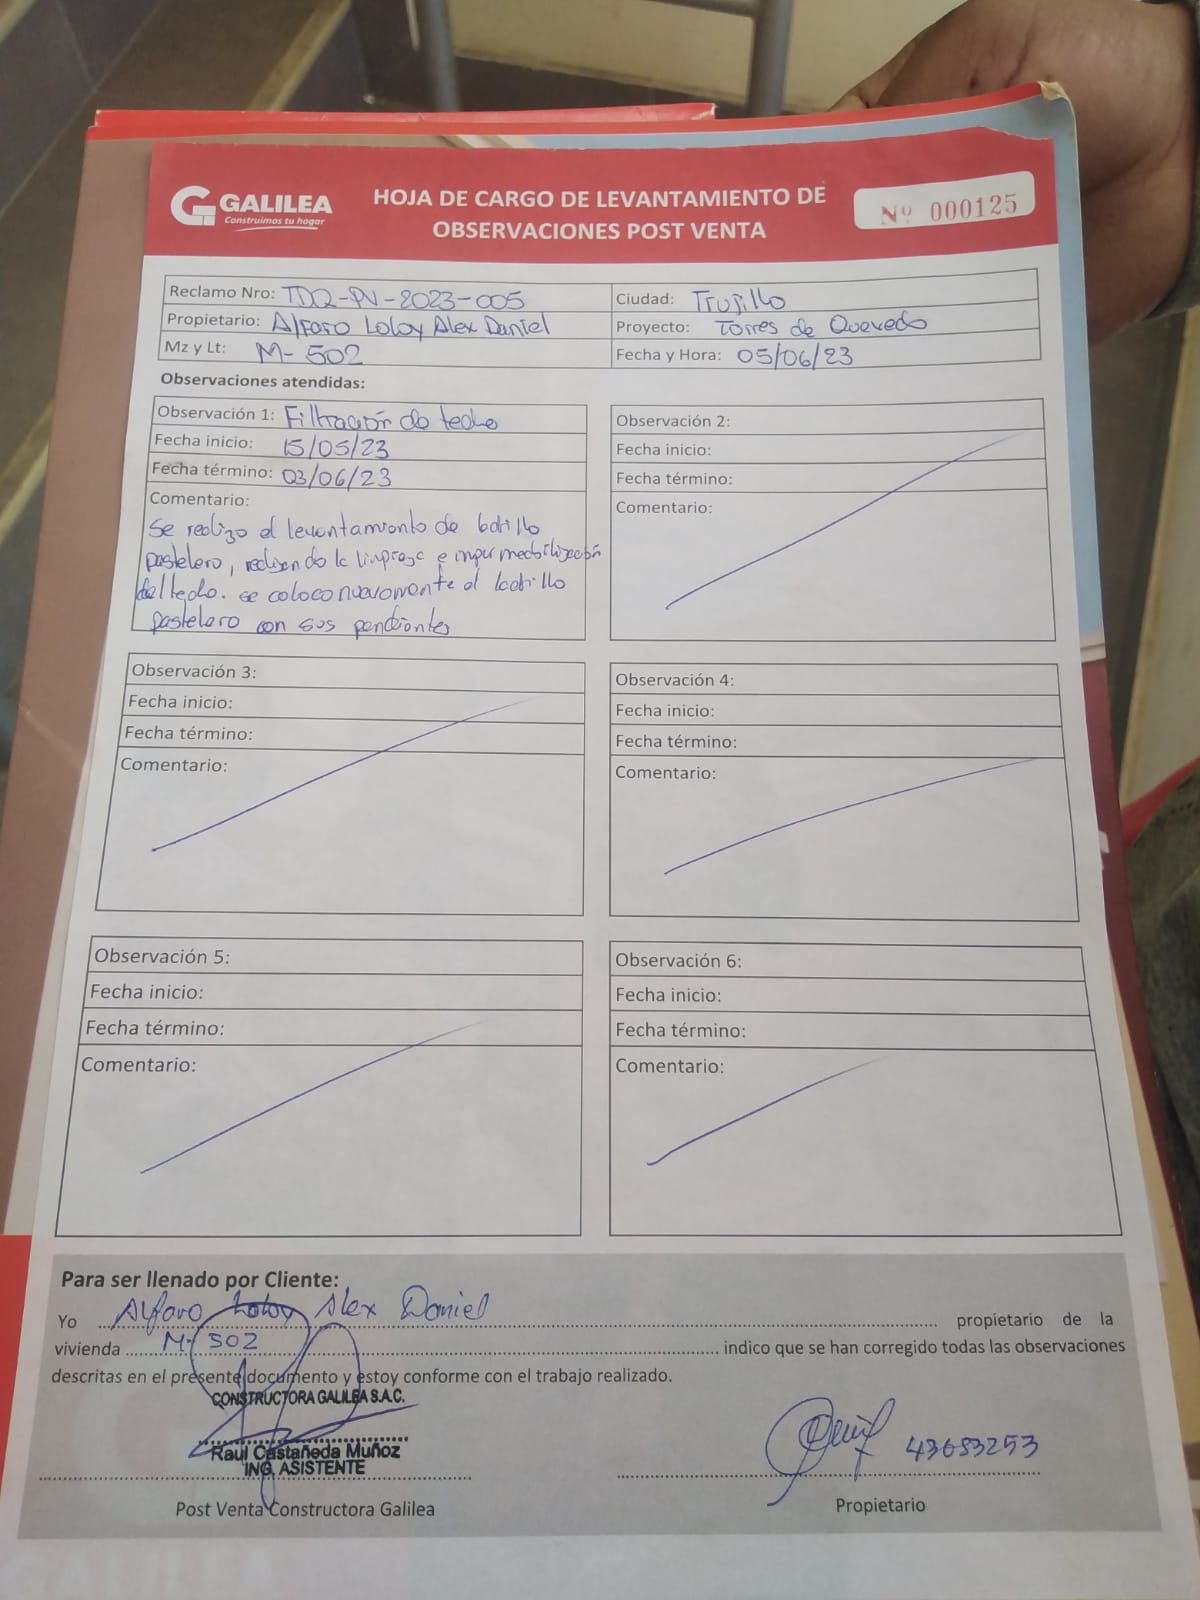 GALILEA
Construimos tu hogar
HOJA DE CARGO DE LEVANTAMIENTO DE
OBSERVACIONES POST VENTA
Nº 000125
Reclamo Nro: TDQ-PV-2023-005
Ciudad: Trujillo
Propietario: Alfaro Loloy Alex Daniel
Proyecto: Torres de Quevedo
Mz y Lt: M-502
Fecha y Hora: 05/06/23
Observaciones atendidas:
Observación 1: Filtración de techo
Fecha inicio: 15/05/23
Fecha término: 03/06/23
Comentario:
Se realizo el levantamiento de ladrillo
pastelero, realizando la limpieza e impermeabilización
del techo. se coloco nuevamente el ladrillo
pastelero con sus pendientes
Observación 2:
Fecha inicio:
Fecha término:
Comentario:
Observación 3:
Fecha inicio:
Fecha término:
Comentario:
Observación 4:
Fecha inicio:
Fecha término:
Comentario:
Observación 5:
Fecha inicio:
Fecha término:
Comentario:
Observación 6:
Fecha inicio:
Fecha término:
Comentario:
Para ser llenado por Cliente:
Yo Alfaro Loloy Alex Daniel propietario de la
vivienda M-502 indico que se han corregido todas las observaciones
descritas en el presente documento y estoy conforme con el trabajo realizado.
CONSTRUCTORA GALILEA S.A.C.
Raul Castañeda Muñoz
ING. ASISTENTE
Post Venta Constructora Galilea
43683253
Propietario
GALILEA